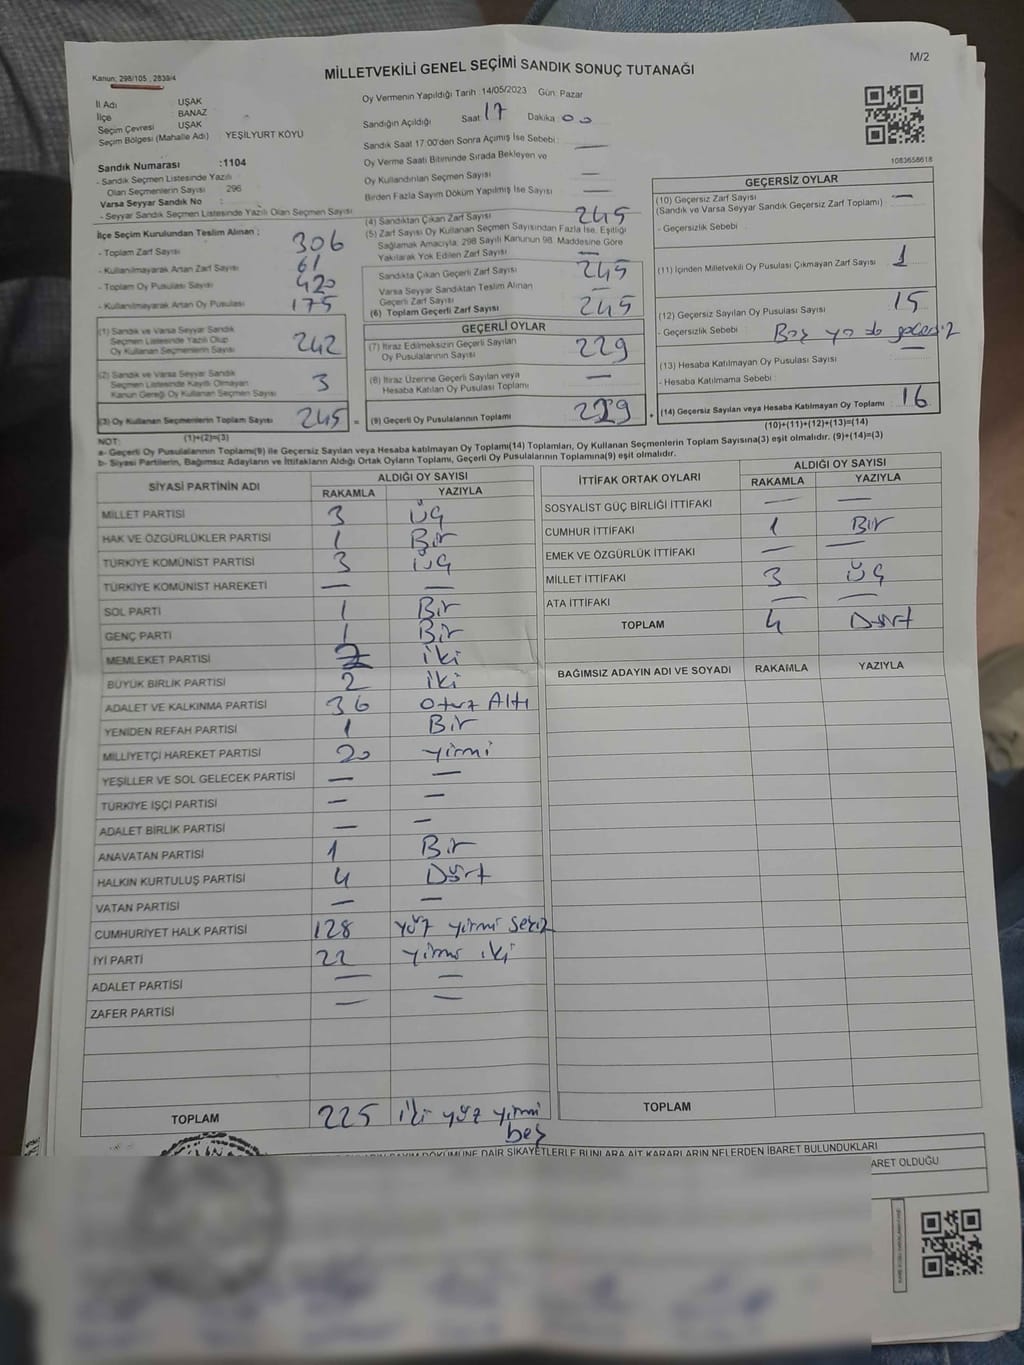 M/2
Kanun: 298/105 , 2839/4
MİLLETVEKİLİ GENEL SEÇİMİ SANDIK SONUÇ TUTANAĞI
İl Adı UŞAK
İlçe BANAZ
Seçim Çevresi UŞAK
Seçim Bölgesi (Mahalle Adı) YEŞİLYURT KÖYÜ
Sandık Numarası :1104
- Sandık Seçmen Listesinde Yazılı
Olan Seçmenlerin Sayısı 296
Varsa Seyyar Sandık No :
- Seyyar Sandık Seçmen Listesinde Yazılı Olan Seçmen Sayısı
Oy Vermenin Yapıldığı Tarih :14/05/2023 Gün: Pazar
Sandığın Açıldığı Saat 17 Dakika 00
Sandık Saat 17:00'den Sonra Açımış İse Sebebi : —
Oy Verme Saati Bitiminde Sırada Bekleyen ve
Oy Kullandırılan Seçmen Sayısı —
Birden Fazla Sayım Döküm Yapılmış İse Sayısı —
1083658618
İlçe Seçim Kurulundan Teslim Alınan ;
- Toplam Zarf Sayısı 306
- Kullanılmayarak Artan Zarf Sayısı 61
- Toplam Oy Pusulası Sayısı 420
- Kullanılmayarak Artan Oy Pusulası 175
(1) Sandık ve Varsa Seyyar Sandık
Seçmen Listesinde Yazılı Olup
Oy Kullanan Seçmenlerin Sayısı 242
(2) Sandık ve Varsa Seyyar Sandık
Seçmen Listesinde Kayıtlı Olmayan
Kanun Gereği Oy Kullanan Seçmen Sayısı 3
(3) Oy Kullanan Seçmenlerin Toplam Sayısı 245 =
(1)+(2)=(3)
(4) Sandıktan Çıkan Zarf Sayısı 245
(5) Zarf Sayısı Oy Kullanan Seçmen Sayısından Fazla İse, Eşitliği
Sağlamak Amacıyla; 298 Sayılı Kanunun 98. Maddesine Göre
Yakılarak Yok Edilen Zarf Sayısı —
Sandıkta Çıkan Geçerli Zarf Sayısı 245
Varsa Seyyar Sandıktan Teslim Alınan
Geçerli Zarf Sayısı —
(6) Toplam Geçerli Zarf Sayısı 245
GEÇERLİ OYLAR
(7) İtiraz Edilmeksizin Geçerli Sayılan
Oy Pusulalarının Sayısı 229
(8) İtiraz Üzerine Geçerli Sayılan veya
Hesaba Katılan Oy Pusulası Toplamı —
(9) Geçerli Oy Pusulalarının Toplamı 229 +
GEÇERSİZ OYLAR
(10) Geçersiz Zarf Sayısı
(Sandık ve Varsa Seyyar Sandık Geçersiz Zarf Toplamı) —
- Geçersizlik Sebebi :
(11) İçinden Milletvekili Oy Pusulası Çıkmayan Zarf Sayısı 1
(12) Geçersiz Sayılan Oy Pusulası Sayısı 15
- Geçersizlik Sebebi : Boş ya da geçersiz
(13) Hesaba Katılmayan Oy Pusulası Sayısı —
- Hesaba Katılmama Sebebi :
(14) Geçersiz Sayılan veya Hesaba Katılmayan Oy Toplamı 16
(10)+(11)+(12)+(13)=(14)
NOT:
a- Geçerli Oy Pusulalarının Toplamı(9) ile Geçersiz Sayılan veya Hesaba katılmayan Oy Toplamı(14) Toplamları, Oy Kullanan Seçmenlerin Toplam Sayısına(3) eşit olmalıdır. (9)+(14)=(3)
b- Siyasi Partilerin, Bağımsız Adayların ve İttifakların Aldığı Ortak Oyların Toplamı, Geçerli Oy Pusulalarının Toplamına(9) eşit olmalıdır.
SİYASİ PARTİNİN ADI ALDIĞI OY SAYISI
RAKAMLA YAZIYLA
MİLLET PARTİSİ 3 üç
HAK VE ÖZGÜRLÜKLER PARTİSİ 1 Bir
TÜRKİYE KOMÜNİST PARTİSİ 3 üç
TÜRKİYE KOMÜNİST HAREKETİ — —
SOL PARTİ 1 Bir
GENÇ PARTİ 1 Bir
MEMLEKET PARTİSİ 2 iki
BÜYÜK BİRLİK PARTİSİ 2 iki
ADALET VE KALKINMA PARTİSİ 36 otuz Altı
YENİDEN REFAH PARTİSİ 1 Bir
MİLLİYETÇİ HAREKET PARTİSİ 20 yirmi
YEŞİLLER VE SOL GELECEK PARTİSİ — —
TÜRKİYE İŞÇİ PARTİSİ — —
ADALET BİRLİK PARTİSİ — —
ANAVATAN PARTİSİ 1 Bir
HALKIN KURTULUŞ PARTİSİ 4 Dört
VATAN PARTİSİ — —
CUMHURİYET HALK PARTİSİ 128 yüz yirmi sekiz
İYİ PARTİ 22 yirmi iki
ADALET PARTİSİ — —
ZAFER PARTİSİ — —
TOPLAM 225 iki yüz yirmi
beş
İTTİFAK ORTAK OYLARI ALDIĞI OY SAYISI
RAKAMLA YAZIYLA
SOSYALİST GÜÇ BİRLİĞİ İTTİFAKI — —
CUMHUR İTTİFAKI 1 Bir
EMEK VE ÖZGÜRLÜK İTTİFAKI — —
MİLLET İTTİFAKI 3 üç
ATA İTTİFAKI — —
TOPLAM 4 Dört
BAĞIMSIZ ADAYIN ADI VE SOYADI RAKAMLA YAZIYLA
TOPLAM
SAYIM DÖKÜMÜNE DAİR ŞİKAYETLERLE BUNLARA AİT KARARLARIN NELERDEN İBARET BULUNDUKLARI
OLDUĞU